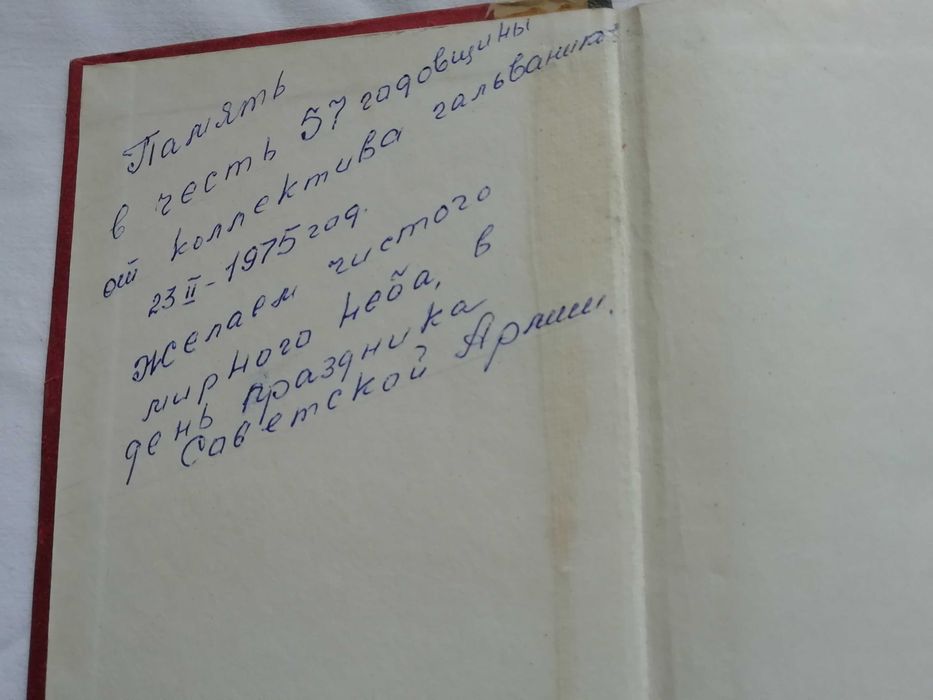 Память
в честь 57 годовщины
от коллектива гальваники
23 II - 1975 год.
Желаем чистого
мирного неба, в
день праздника
Советской Армии.